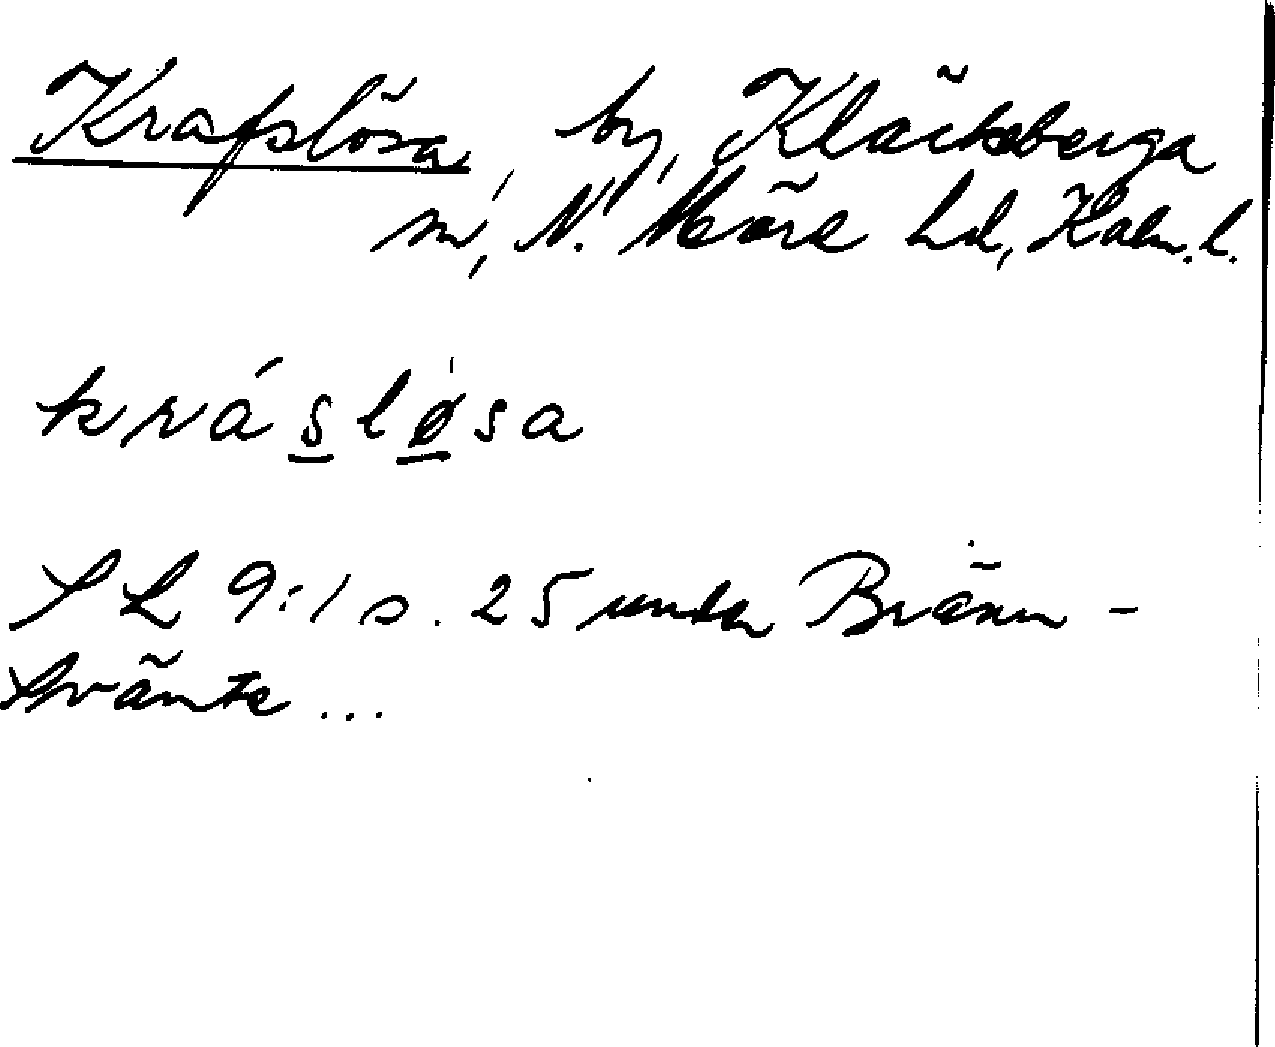 Krafslösa, by, Kläckeberga
sn, N. Möre hd, Kalm. l.
kráslǿsa
SL 9:1 s. 25 under Bränn-
svänte ...